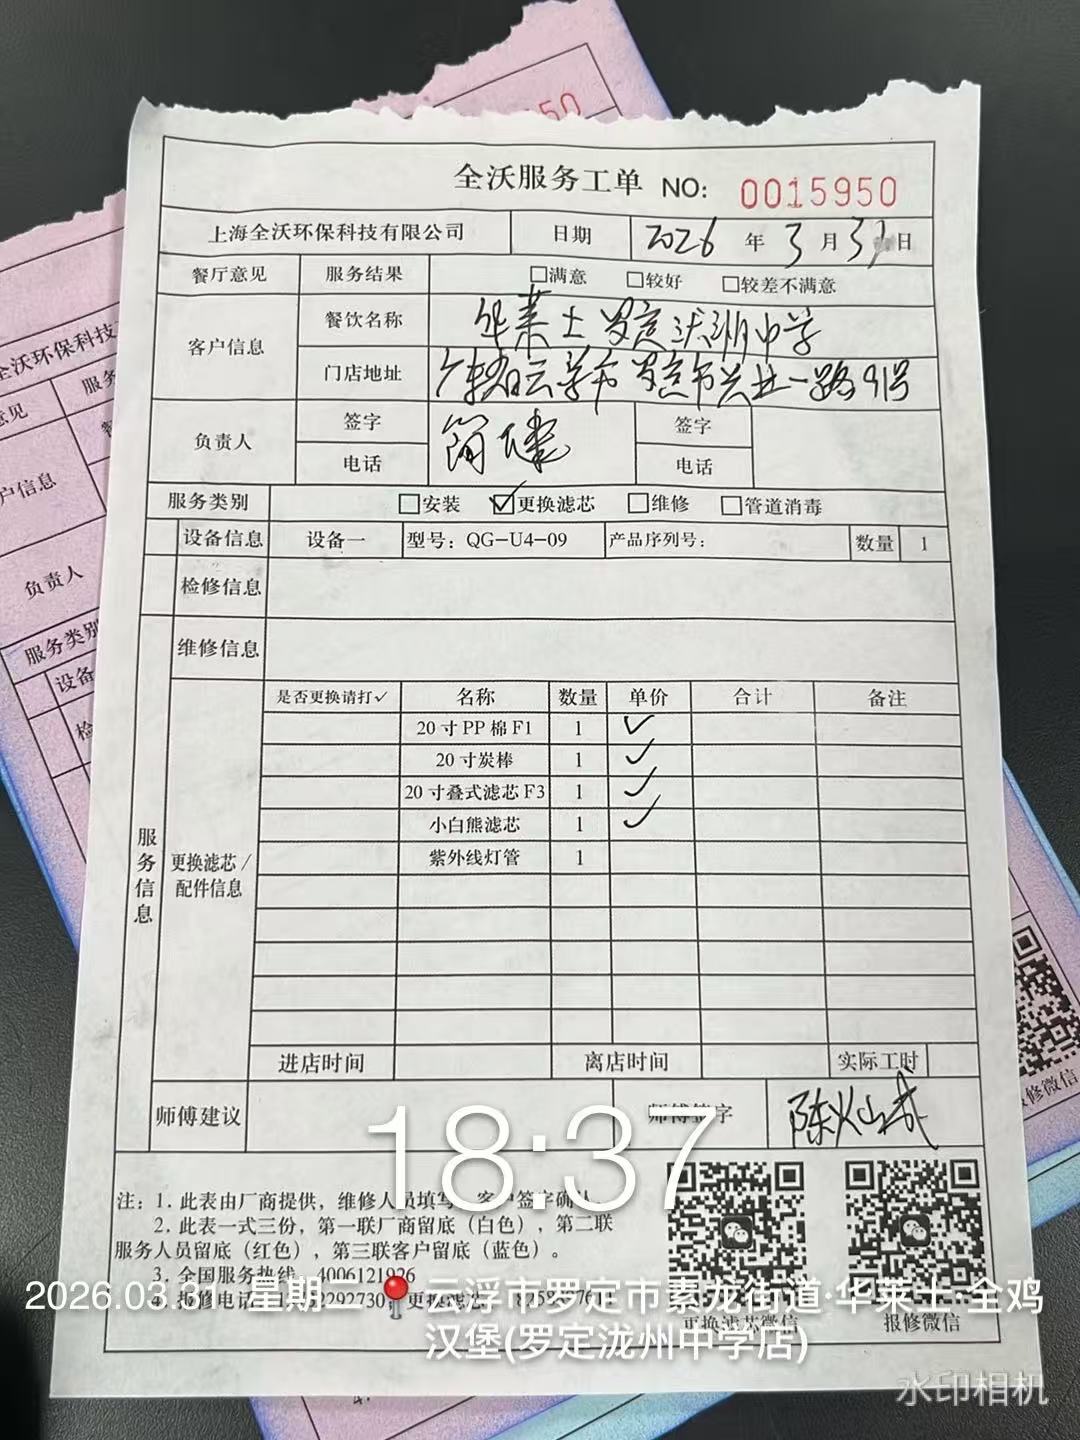 全沃服务工单 NO: 0015950
上海全沃环保科技有限公司 日期 2026 年 3 月 31 日
餐厅意见 服务结果 □满意 □较好 □较差不满意
客户信息 餐饮名称 华莱士罗定泷州中学
门店地址 广东省云浮市罗定市兴业一路91号
负责人 签字 签字
电话 电话
服务类别 □安装 ☑更换滤芯 □维修 □管道消毒
设备信息 设备一 型号: QG-U4-09 产品序列号: 数量 1
检修信息
维修信息
服务信息
更换滤芯/
配件信息
是否更换请打✓ 名称 数量 单价 合计 备注
20寸PP棉F1 1 ✓
20寸炭棒 1 ✓
20寸叠式滤芯F3 1 ✓
小白熊滤芯 1 ✓
紫外线灯管 1
进店时间 离店时间 实际工时
师傅建议 师傅签字
18:37
注: 1. 此表由厂商提供，维修人员填写，客户签字确认
2. 此表一式三份，第一联厂商留底（白色），第二联
服务人员留底（红色），第三联客户留底（蓝色）。
3. 全国服务热线 4006121926
4. 报修电话
更换滤芯微信 报修微信
2026.03.31 星期二 云浮市罗定市素龙街道·华莱士·全鸡
汉堡(罗定泷州中学店)
水印相机
50
全沃环保科技
服务
意见
户信息
负责人
服务类别
设备
检
报修微信